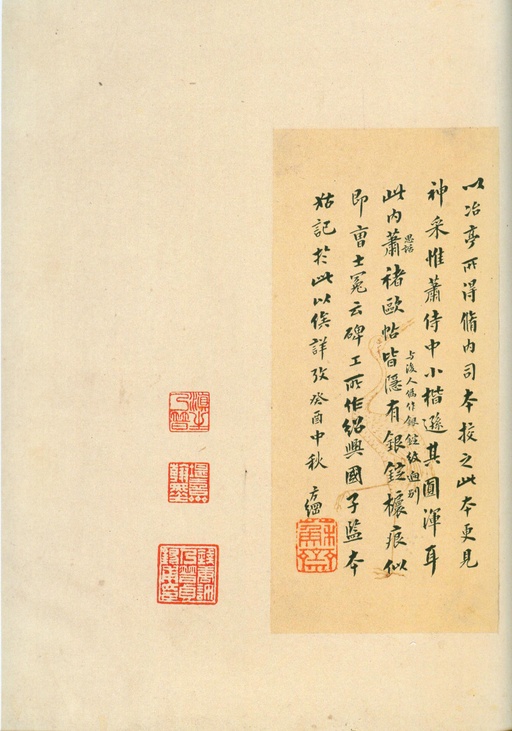 以冶亭所得脩内司本挍之此本更見
神采惟蕭侍中小楷遜其圓渾耳
此内蕭思話褚歐帖皆隱有銀錠欀痕似
與後人僞作銀錠紋迥别
即曹士冕云碑工所作紹興國子監本
姑記於此以俟詳攷癸酉中秋 方綱